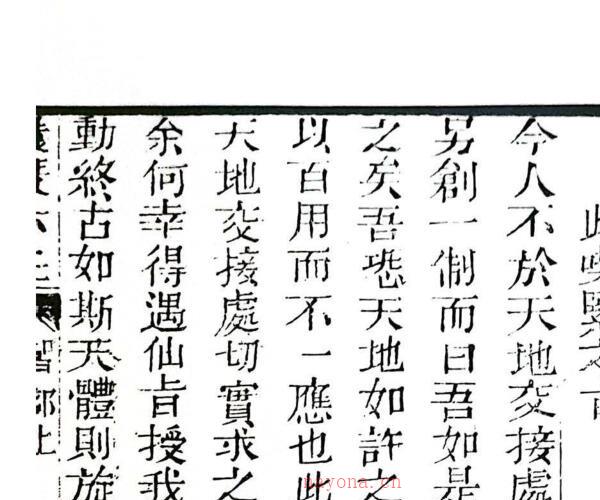 今人不於天地交接處
另創一制而曰吾如是
之矣吾恐天地如許之
以百用而不一應也此
天地交接處切實求之
余何幸得遇仙旨授我
動終古如斯天體則旋
智部上
nayona.cn